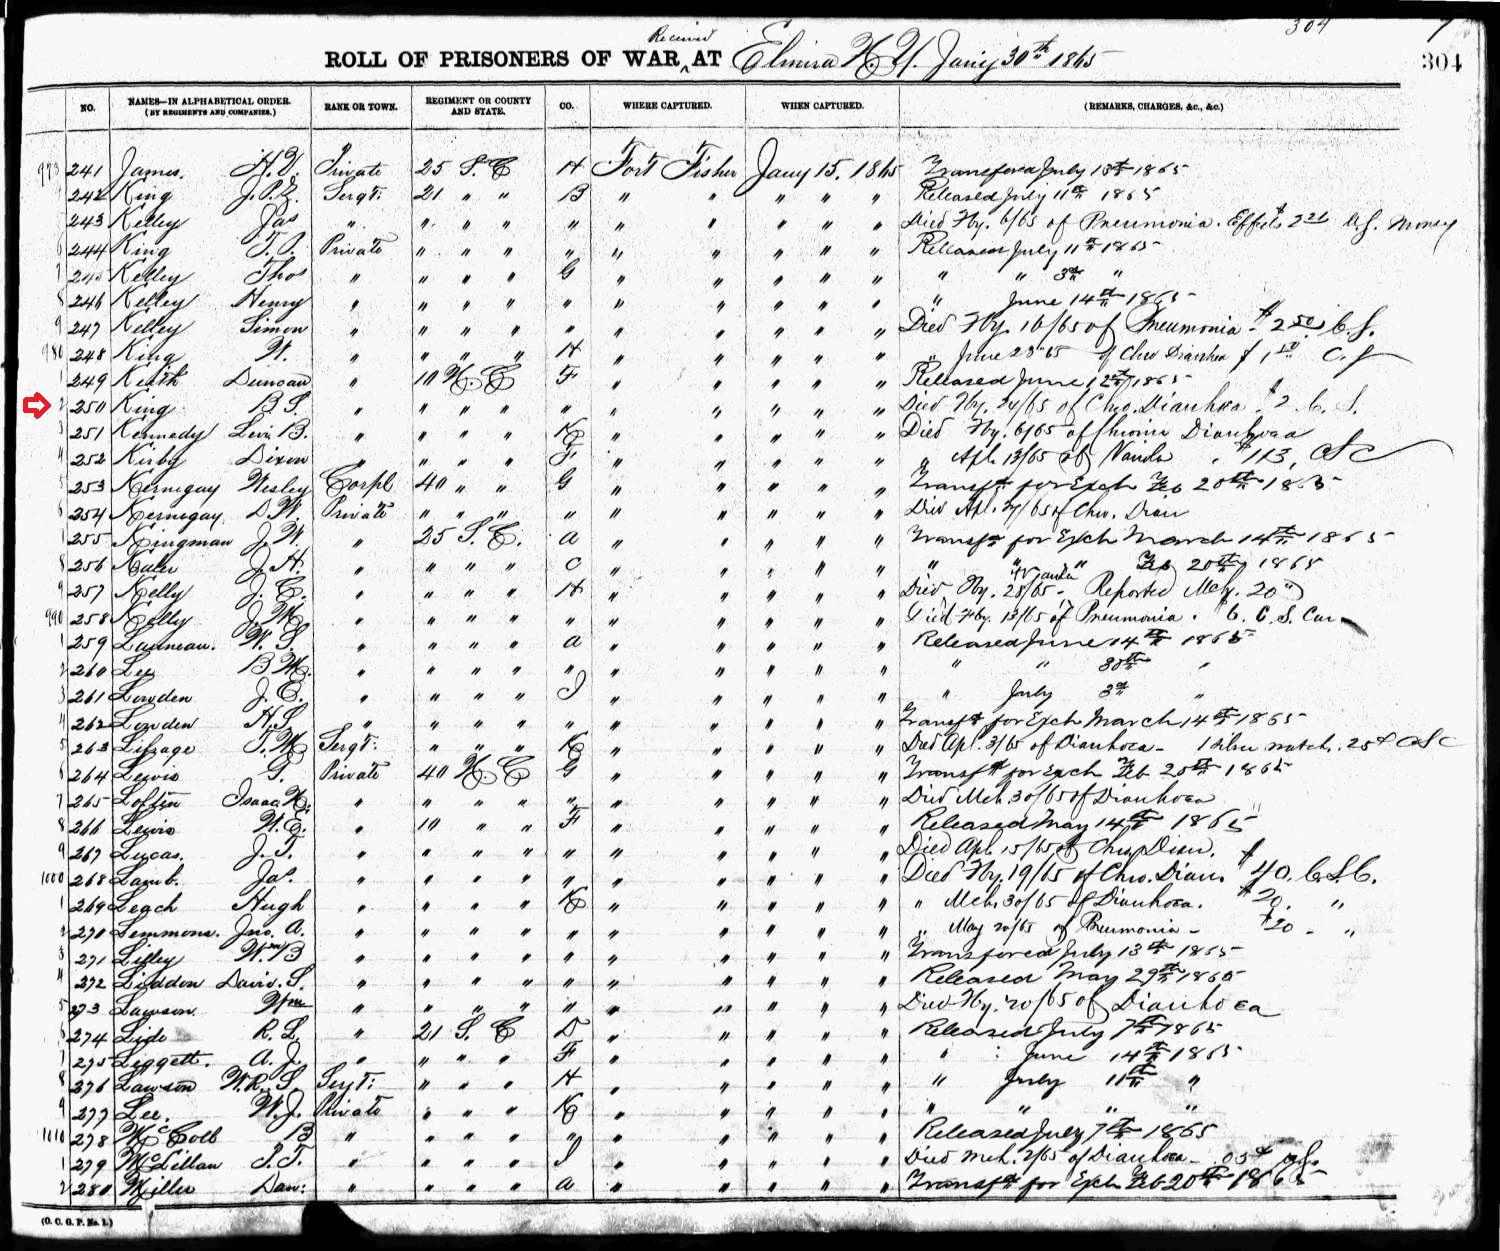 304 7
Received
ROLL OF PRISONERS OF WAR ^ AT Elmira N. Y. Jany 30th 1865 304
NO. NAMES—IN ALPHABETICAL ORDER. (BY REGIMENTS AND COMPANIES.) RANK OR TOWN. REGIMENT OR COUNTY AND STATE. CO. WHERE CAPTURED. WHEN CAPTURED. (REMARKS, CHARGES, &c., &c.)
973 241 James. Private 25 S. C H Fort Fisher Jany 15. 1865 Transfered July 13th 1865
242 King J.P.E. Sergt: 21 " " B " " " " " Released July 11th 1865
243 Kelley Jas " " " " " " " " " " Died Fby. 6/65 of Pneumonia. Effects $2 U.S. Money
6 244 King Private " " " " " " " " " Released July 11th 1865
7 245 Kelley Thos " " " " G " " " " " " " 3rd "
8 246 Kelley Henry " " " " " " " " " " " June 14th 1865
9 247 Kelley Simon " " " " " " " " " " Died Fby. 16/65 of Pneumonia - $2 50 C.S.
980 248 King W. " " " " H " " " " " " June 23 65 of Chro Diarrhea $1 C. S
1 249 Keith Duncan " 10 N. C F " " " " " Released June 12th 1865
2 250 King B S. " " " " " " " " " " Died Fby. 24/65 of Chro. Diarrhoea $2. C. S.
3 251 Kennedy Levi B. " " " " K " " " " " Died Fby. 6/65 of Chronic Diarrhoea
4 252 Kirby Dixon " " " " F " " " " " " Apl. 13/65 of $113, CSC
5 253 Kernegay Wesley Corpl 40 " " G " " " " " Transfd for Exch Feb 20th 1865
6 254 Kernegay. D.W. Private " " " " " " " " " Died Apl. of Chro. Diarr
255 Kingman J. W. " 25 S. C. a " " " " " Transfd for Exch March 14th 1865
8 256 J. H. " " " " C " " " " " " " " Feb 20th 1865
9 257 Kelly J. C. " " " " H " " " " " Died Fby. 28/65 - Reported Mch. 20
990 258 Kelly J. M. " " " " " " " " " " Died Fby. 13/65 of Pneumonia.
1 259 Launeau. W. S. " " " " a " " " " " Released June 14th 1865
2 260 Lee B M. " " " " " " " " " " " " 30th "
3 261 Lowden J. E. " " " " I " " " " " " July 3rd "
4 262 Lowden H.S. " " " " " " " " " " Transfd for Exch March 14th 1865
5 263 Lifrage T. M Sergt: " " " K " " " " " Died Apl. 3/65 of Diarrhoea - 1 silver watch. CSC
6 264 Lewis G. Private 40 N. C G " " " " " Transfd for Exch Feb 20th 1865
7 265 Loftin Isaac N. " " " " " " " " " " Died Mch. 30/65 of Diarrhoea
8 266 Lewis W. E. " 10 " " F " " " " " Released May 14th 1865
9 267 Lucas. J. T. " " " " " " " " " " Died Apl. 15/65 of Chro Diarr.
1000 268 Lamb. Jas. " " " " " " " " " " Died Fby. 19/65 of Chro. Diarr. $40. C.S.C.
1 269 Leach Hugh " " " " K " " " " " " Mch. 30/65 of Diarrhoea. $20. "
2 270 Lemmons. Jno. A. " " " " " " " " " " " May 20/65 of Pneumonia - $20 - "
3 271 Lilley Wm B " " " " " " " " " " Transfered July 13th 1865
4 272 Liddon David. S. " " " " " " " " " " Released May 29th 1865
5 273 Lawson. Wm " " " " " " " " " " Died Fby. 20/65 of Diarrhoea
6 274 Lide R. L. " 21 S. C D " " " " " Released July 7th 1865
7 275 Liggett. A. J. " " " " F " " " " " " June 14th 1865
8 276 Lawson W.R. S. Sergt: " " " H " " " " " " July 11th "
9 277 Lee. W. J. Private " " " K " " " " " " " " "
1010 278 McColl B " " " " " " " " " " Released July 7th 1865
1 279 McLillan T. T. " " " " I " " " " " Died Mch. 2/65 of Diarrhoea -
2 280 Miller Dan: " " " " a " " " " " Transfd for Exch Feb 20th 1865
(O. C. G. P. No. 1.)